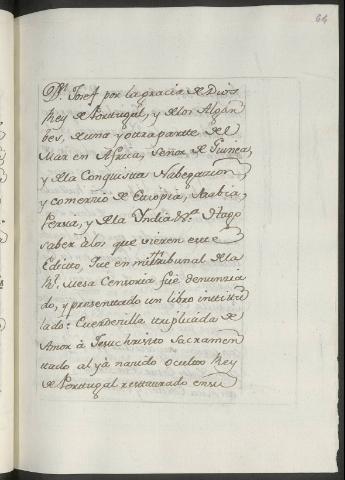 64
Dn. Josef por la gracia de Dios
Rey de Portugal, y de los Algar
bes, de una y otra parte del
Mar en Africa, Señor de Guinea,
y de la Conquista Nabegacion
y comercio de Etiopia, Arabia,
Persia, y de la Yndia &a. Hago
saber à los que vieren este
Edicto, Que en mi tribunal de la
Rl. mesa Censoria fuè denuncia
do, y presentado un libro intitu
lado: Cuerdecilla triplicada de
Amor à Jesuchristo Sacramen
tado al yà nacido oculto Rey
de Portugal restaurado en su